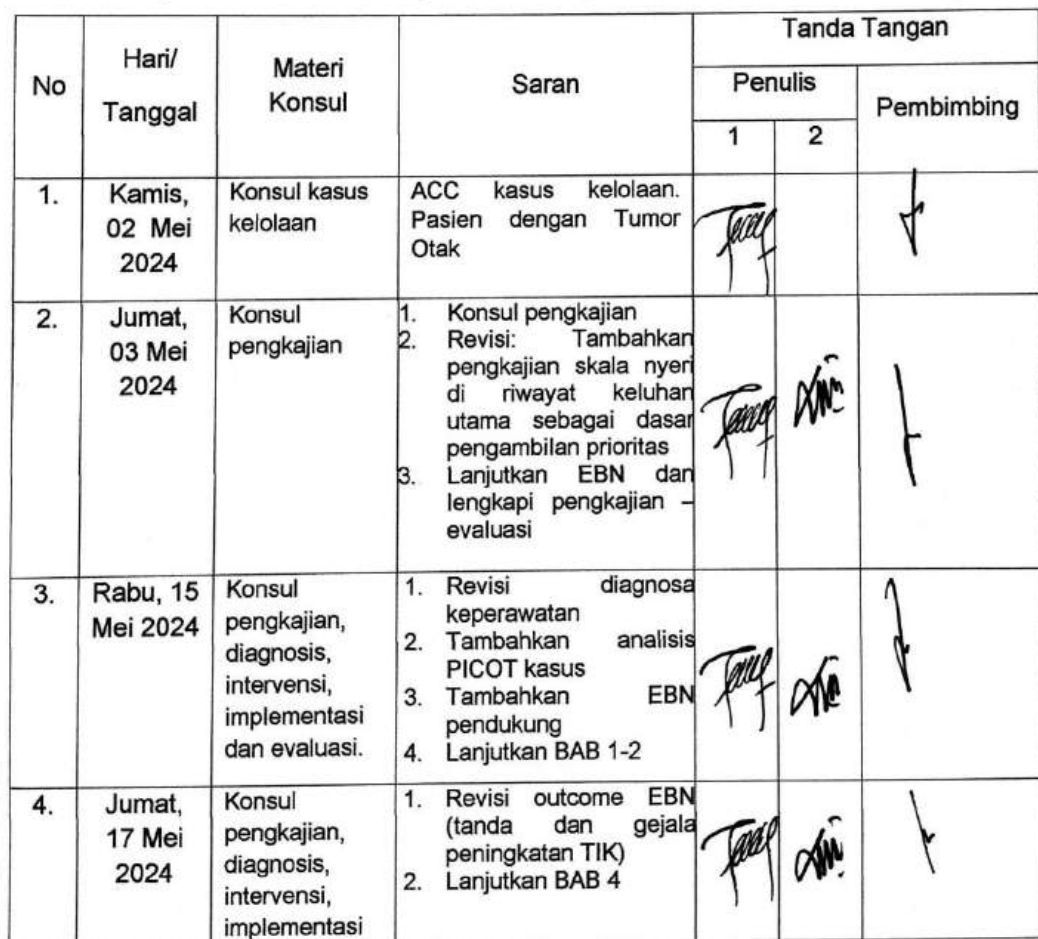 No
Hari/
Tanggal
Materi
Konsul
Saran
Tanda Tangan
Penulis
Pembimbing
1
2
1.
Kamis,
02 Mei
2024
Konsul kasus
kelolaan
ACC kasus kelolaan.
Pasien dengan Tumor
Otak
2.
Jumat,
03 Mei
2024
Konsul
pengkajian
1. Konsul pengkajian
2. Revisi: Tambahkan
pengkajian skala nyeri
di riwayat keluhan
utama sebagai dasar
pengambilan prioritas
3. Lanjutkan EBN dan
lengkapi pengkajian –
evaluasi
3.
Rabu, 15
Mei 2024
Konsul
pengkajian,
diagnosis,
intervensi,
implementasi
dan evaluasi.
1. Revisi diagnosa
keperawatan
2. Tambahkan analisis
PICOT kasus
3. Tambahkan EBN
pendukung
4. Lanjutkan BAB 1-2
4.
Jumat,
17 Mei
2024
Konsul
pengkajian,
diagnosis,
intervensi,
implementasi
1. Revisi outcome EBN
(tanda dan gejala
peningkatan TIK)
2. Lanjutkan BAB 4